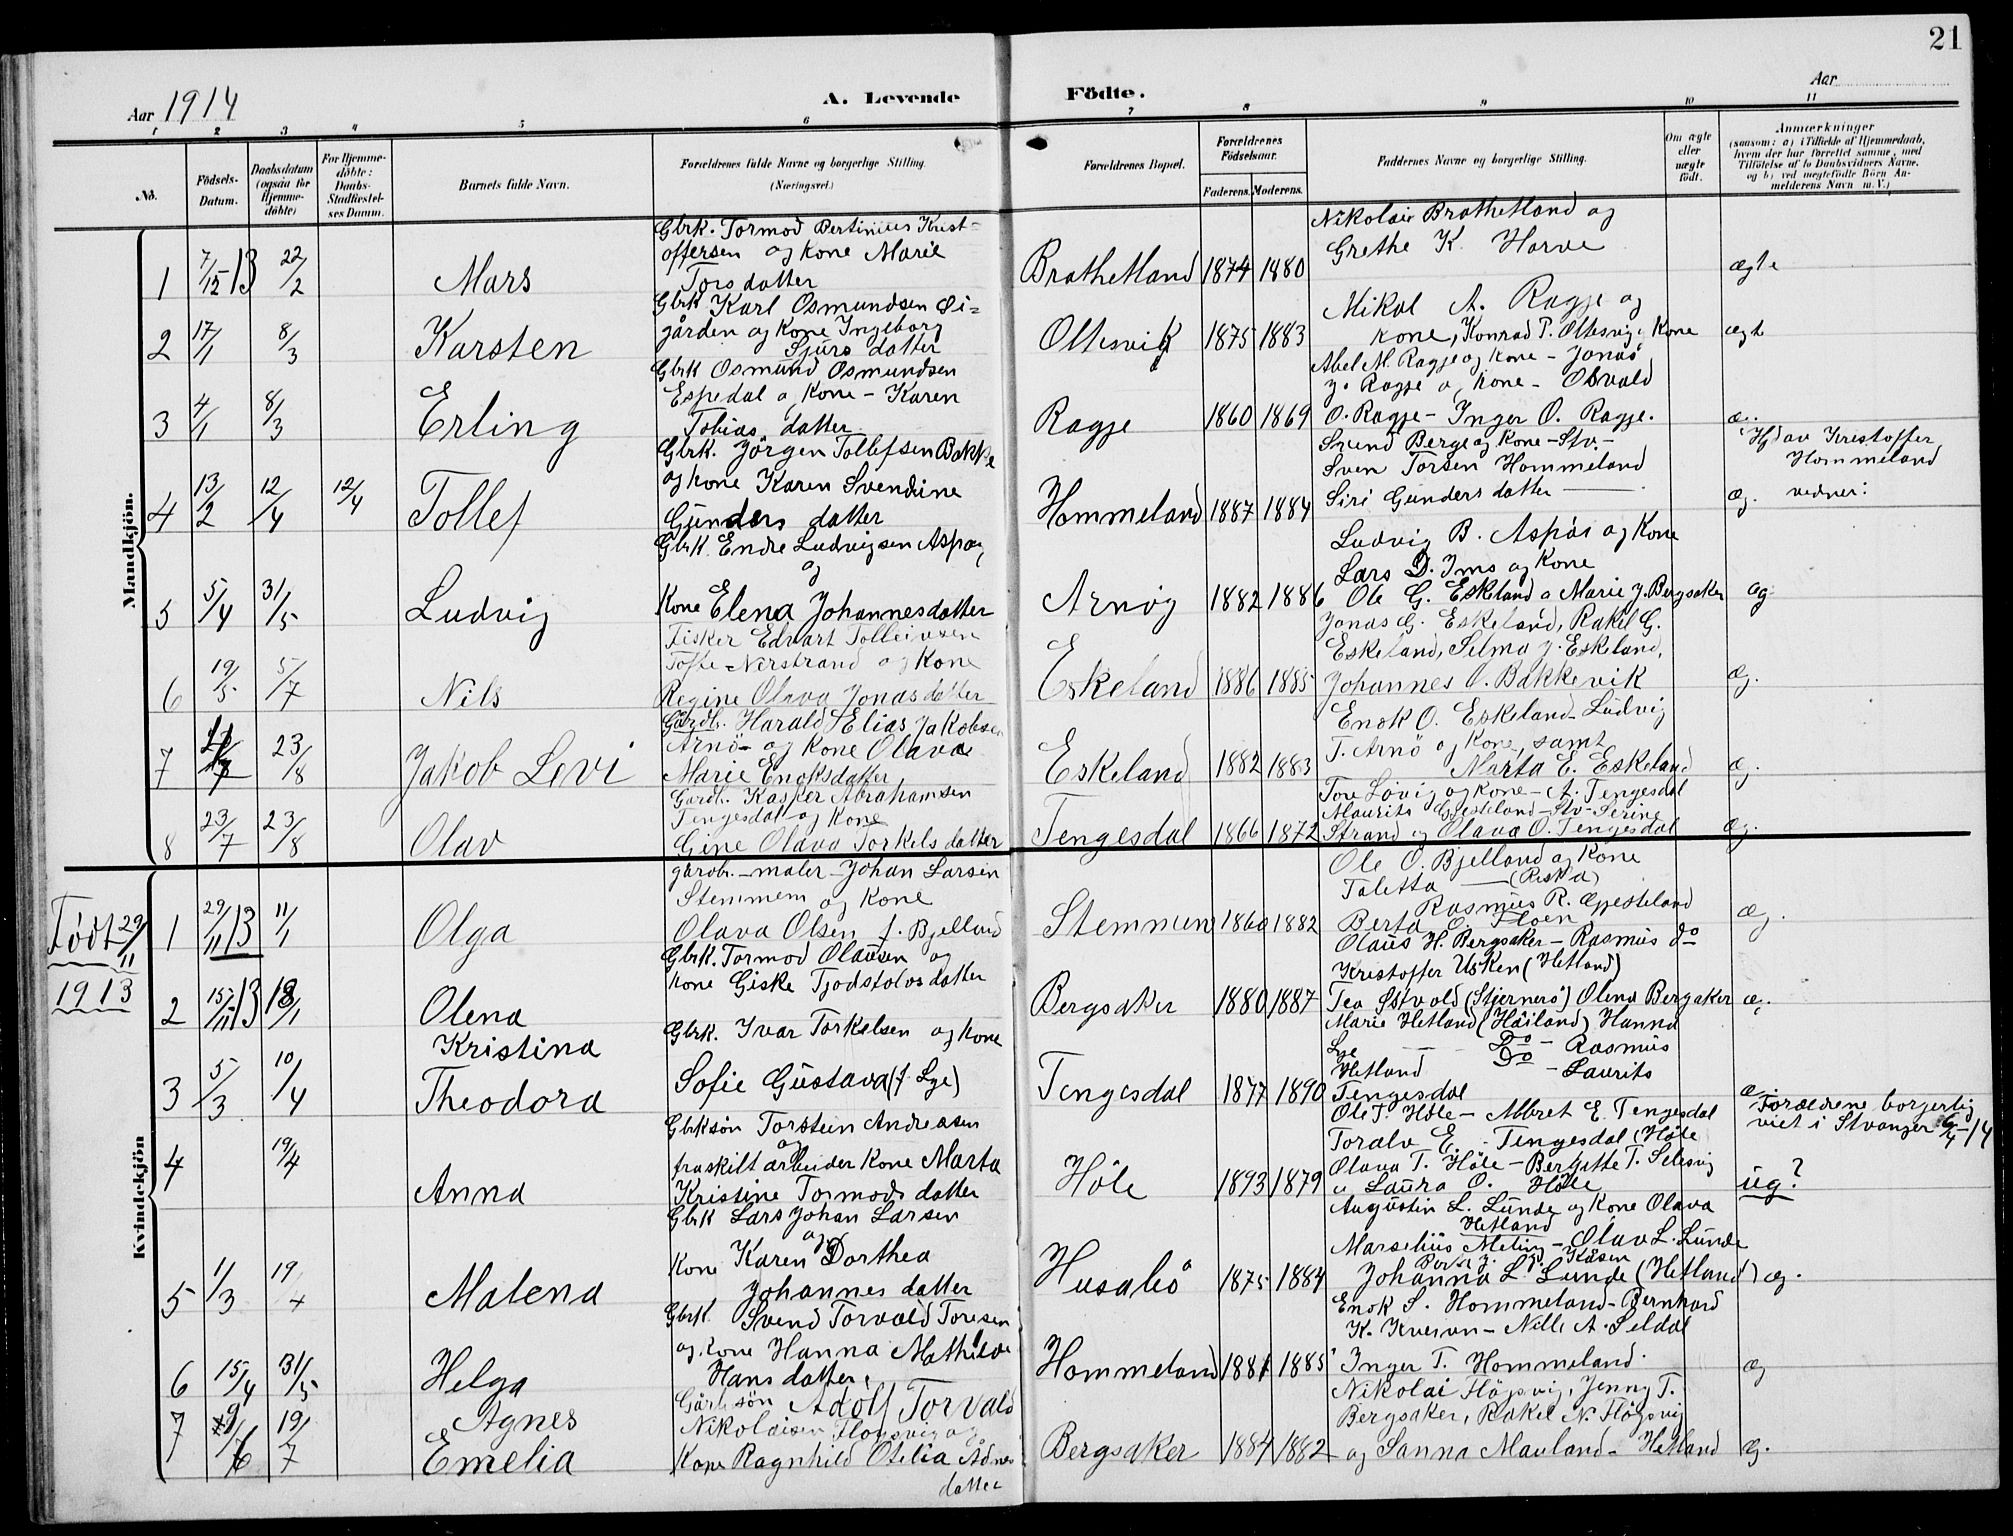 21
Aar 1914
A. Levende Födte.
Aar
1 2 3 4 5 6 7 8 9 10 11
No.
Födsels-Datum.
Daabsdatum (ogsaa for Hjemme-döbte)
For Hjemme-döbte: Daabs-Stadfæstel-ses Datum.
Barnets fulde Navn.
Forældrenes fulde Navne og borgerlige Stilling. (Næringsvei.)
Forældrenes Bopæl.
Forældrenes Födselsaar.
Faderens. Moderens.
Faddernes Navne og borgerlige Stilling.
Om ægte eller uægte födt.
Anmærkninger
(saasom: a) i Tilfælde af Hjemmedaab, hvem der har forrettet samme, med Tilföielse af to Daabsvidners Navne. og b) ved uægtefödte Börn An-melderens Navn m. V.)
Mandkjön.
1 7/12 13 22/2 Mars
Gbrk. Tormod Bertinius Krist-
offersen og Kone Marie
Torsdatter
Brathetland 1874 1880
Nikolai Brathetland og
Grethe K. Harve
ægte
2 17/1 8/3 Karsten
Gbrk Karl Osmundsen Øi-
gården og Kone Ingeborg
Sjurs datter
Oltesvik 1875 1883
Mikal A. Ragje og
kone, Konrad P. Oltesvig, Kone
ægt
3 4/1 8/3 Erling
Gbrk Osmund Osmundsen
Espedal og Kone - Karen
Tobias datter
Ragje 1860 1869
Abel M. Ragje og Kone - Jonas
J. Ragje og Kone - Osvald
O. Ragje - Inger O. Ragje.
æ.
4 13/2 12/4 12/4 Tollef
Gbrk. Jörgen Tollefsen Bakke
og kone Karen Svendine
Gunders datter
Hommeland 1887 1884
Svend Berge og Kone - Stv. -
Sven Torsen Hommeland
Siri Gunders datter
æg.
Hd av Kristoffer
Hommeland
vedner:
5 5/4 31/5 Ludvig
Gbrk. Endre Ludvigsen Aspøy
og
Kone Elena Johannesdatter
Arnöy 1882 1886
Ludvig B. Aspøs og Kone
Lars D. Ims og Kone
Ole G. Eskeland a Marie J. Bergsaker
æg
6 19/5 5/7 Nils
Fisker Edvart Tolleivsen
Tofte - Nerstrand og Kone
Regine Olava Jonas datter
Eskeland 1886 1885
Jonas G. Eskeland, Rakel G.
Eskeland, Selma J. Eskeland,
Johannes O. Bakkevik
æg.
7 23/8 Jakob Levi
Gårdb. Harald Elias Jakobsen
Arnö - og Kone Olava
Marie Enoksdatter
Eskeland 1882 1883
Enok O. Eskeland - Ludvig
T. Arnö og Kone, samt
Marta E. Eskeland
æg.
8 23/7 23/8 Olav
Gardb. Kasper Abrahamsen
Tengesdal og Kone
Gine Olava Torkels datter
Tengesdal 1866 1872
Tore Lövig og Kone - A. Tengesdal
Maurits Gjesteland - Stv - Serine
Strand og Olava O. Tengesdal
æg.
Kvindekjön
Født 29/11
1913
1 29/11 13 11/1 Olga
gardb. - maler - Johan Larsen
Stemmem og Kone
Olava Olsen f. Bjelland
Stemmem 1860 1882
Ole O. Bjelland og Kone
Taletta - (Riska)
Rasmus R. Gjesteland
Berta O. Floen
æg.
2 15/11 13 18/1 Olena
Gbrk. Tormod Olausen og
Kone Giske Tjodstolvsdatter
Bergsaker 1880 1887
Olaus H. Bergsaker - Rasmus do
Kristoffer Usken (Hetland)
Tea Østvold (Stjernerö) Olena Bergsaker
æ.
3 5/3 10/4 Kristina
Theodora
Gbrk. Ivar Torkelsen og Kone
Sofie Gustava (f. Lye)
Tengesdal 1877 1890
Marie Hetland (Höiland) Hanna
Lye Do - Rasmus
Hetland Do - Laurits
Tengesdal
æ
4 19/4 Anna
Gbksön Torstein Andreasen
og
fraskilt arbeider Kone Marta
Kristine Tormods datter
Höle 1893 1879
Ole T. Höle - Albret E. Tengesdal
Toralv E. Tengesdal (Höle
Olava T. Höle - Bergitte T. Selsvig
a Laura O. Höle
ug?
Foreldrene borgerlig
viet i Stvanger 6/4-14
5 1/3 19/4 Malena
Gbrk Lars Johan Larsen
og
Kone Karen Dorthea
Johannes datter
Husabö 1875 1884
Augustin L. Lunde og Kone Olava
Hetland
Marselius Meling - Olav L. Lunde
Johanna L. Lunde (Hetland)
æg.
6 15/4 31/5 Helga
Gbrk. Svend Torvald Toresen
og Kone Hanna Mathilde
Hans datter,
Hommeland 1881 1885
Enok S. Hommeland - Bernhard
K. Kverven - Nille A. Seldal
Inger T. Hommeland
æg
7 19/7 Agnes
Emelia
Gårbsön Adolf Torvald
Nikolaisen Flogsvig og
Kone Ragnhild Otelia Ådnes
datter
Bergsaker 1884 1882
Nikolai Högsvig, Jenny T.
Bergsaker, Rakel N. Flögsvig
og Sanna Mauland - Hetland
æg.